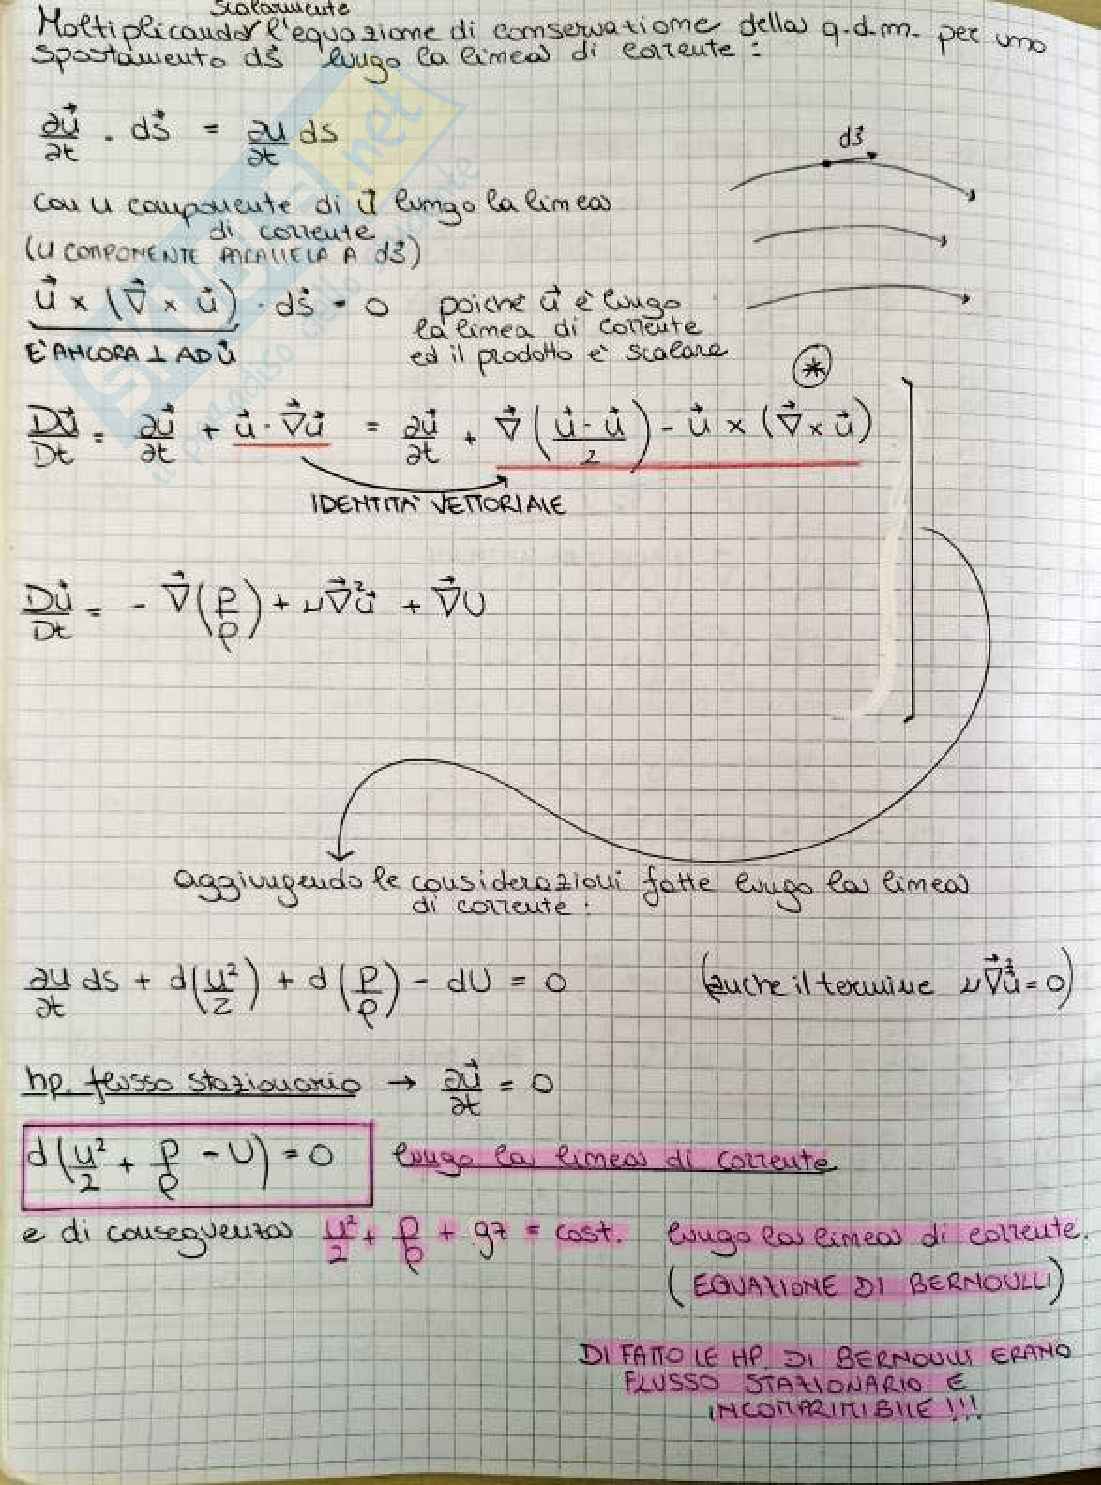 scalarmente
Moltiplicando l'equazione di conservazione della q.d.m. per uno
spostamento ds⃗ lungo la linea di corrente:
∂u⃗/∂t · ds⃗ = ∂u/∂t ds
ds⃗
con u componente di u⃗ lungo la linea
di corrente
(U COMPONENTE PARALLELA A ds⃗)
u⃗ × (∇⃗ × u⃗) · ds⃗ = 0 poiché u⃗ è lungo
la linea di corrente
E' ANCORA ⊥ AD u⃗ ed il prodotto è scalare
*
Du⃗/Dt = ∂u⃗/∂t + u⃗ · ∇⃗u⃗ = ∂u⃗/∂t + ∇⃗(u⃗ · u⃗/2) - u⃗ × (∇⃗ × u⃗)
IDENTITA' VETTORIALE
Du⃗/Dt = - ∇⃗(p/ρ) + ν∇⃗²u⃗ + ∇⃗U
aggiungendo le considerazioni fatte lungo la linea
di corrente:
∂u/∂t ds + d(u²/2) + d(p/ρ) - dU = 0 (anche il termine ν∇⃗²u⃗ = 0)
hp. flusso stazionario → ∂u⃗/∂t = 0
d(u²/2 + p/ρ - U) = 0 lungo la linea di corrente
e di conseguenza u²/2 + p/ρ + gz = cost. lungo la linea di corrente.
(EQUAZIONE DI BERNOULLI)
DI FATTO LE HP. DI BERNOULLI ERANO
FLUSSO STAZIONARIO E
INCOMPRIMIBILE!!!